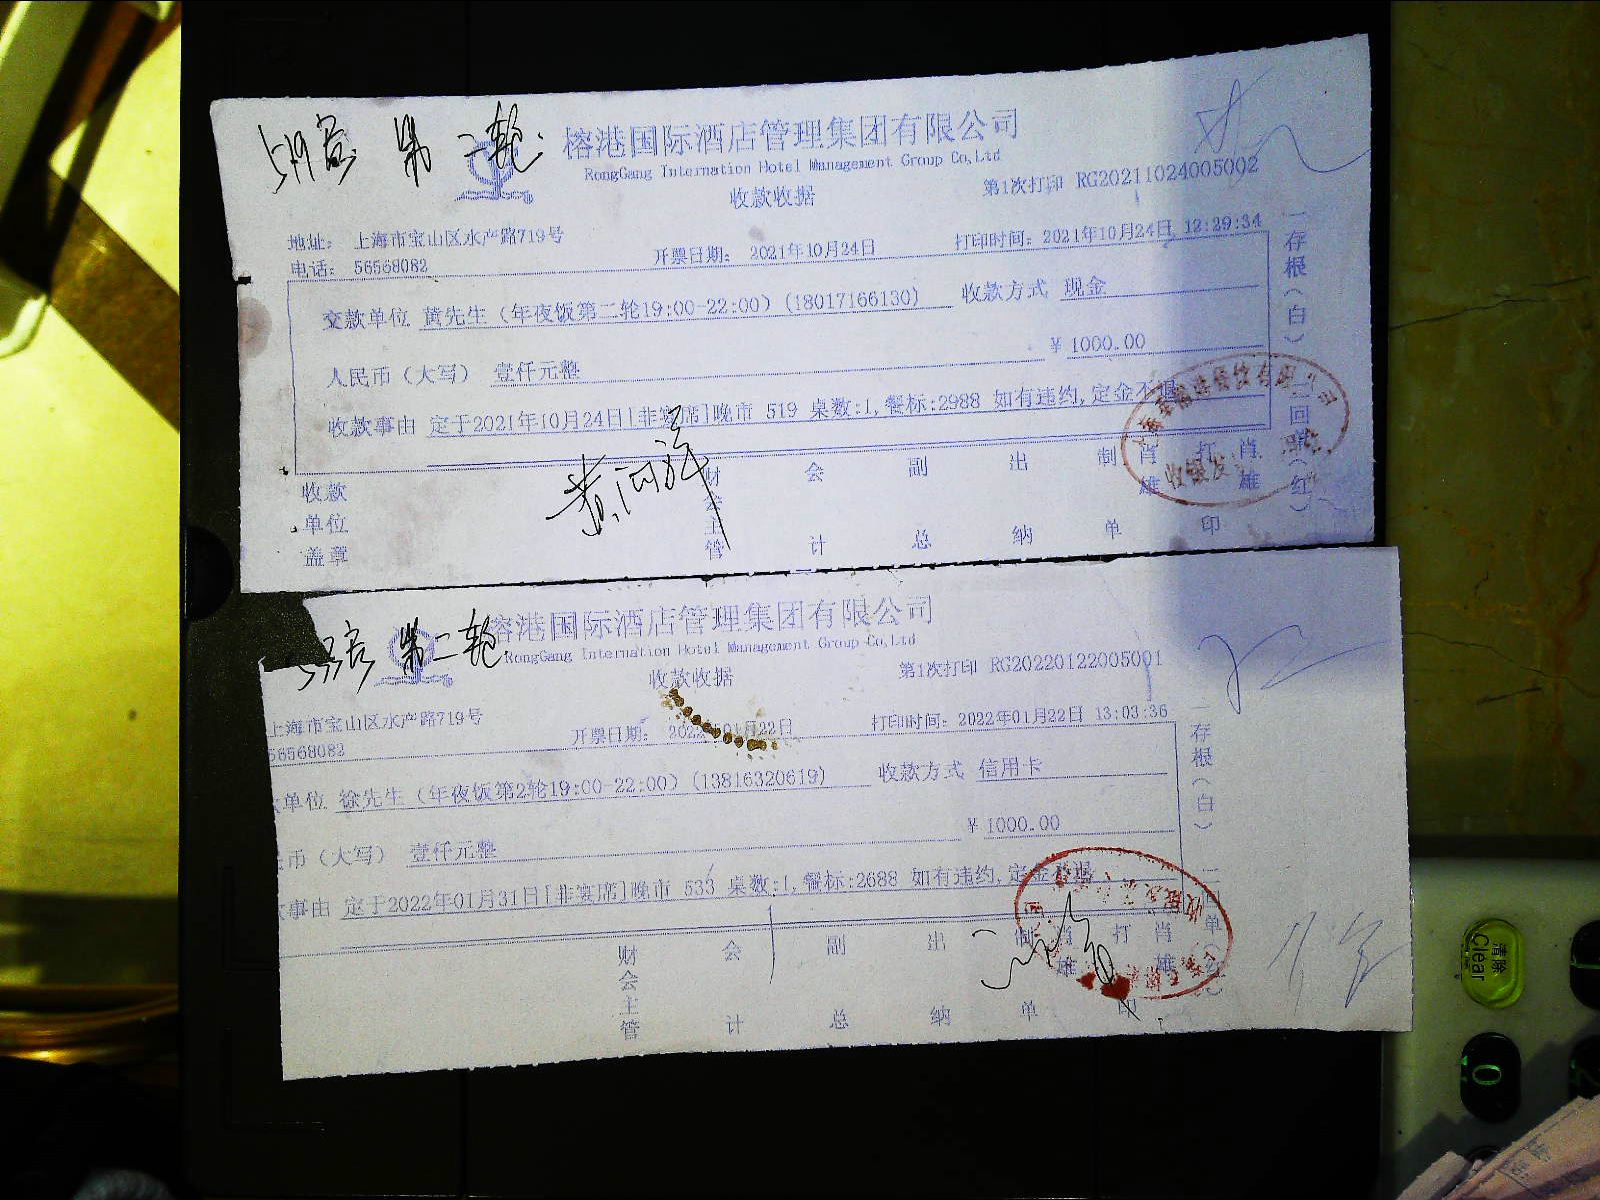 519客 第二轮
榕港国际酒店管理集团有限公司
RongGang Internation Hotel Management Group Co,Ltd
收款收据
第1次打印 RG20211024005002
地址: 上海市宝山区水产路719号
电话: 56568082
开票日期: 2021年10月24日
打印时间: 2021年10月24日 12:29:34
交款单位 黄先生(年夜饭第二轮19:00-22:00)(18017166130) 收款方式 现金
人民币(大写) 壹仟元整 ¥1000.00
收款事由 定于2021年10月24日[非宴席]晚市 519 桌数:1,餐标:2988 如有违约,定金不退
收款单位盖章
财会主管
会计
副总
出纳
制单
肖雄
打印
肖雄
一存根(白) 二回单(红)
第二轮
榕港国际酒店管理集团有限公司
RongGang Internation Hotel Management Group Co,Ltd
收款收据
第1次打印 RG20220122005001
上海市宝山区水产路719号
56568082
开票日期: 2022年01月22日
打印时间: 2022年01月22日 13:03:36
单位 徐先生(年夜饭第2轮19:00-22:00)(13816320619) 收款方式 信用卡
币(大写) 壹仟元整 ¥1000.00
事由 定于2022年01月31日[非宴席]晚市 533 桌数:1,餐标:2688 如有违约,定金不退
财会主管
会计
副总
出纳
制单
肖雄
打印
肖雄
一存根(白)
清除
Clear
0